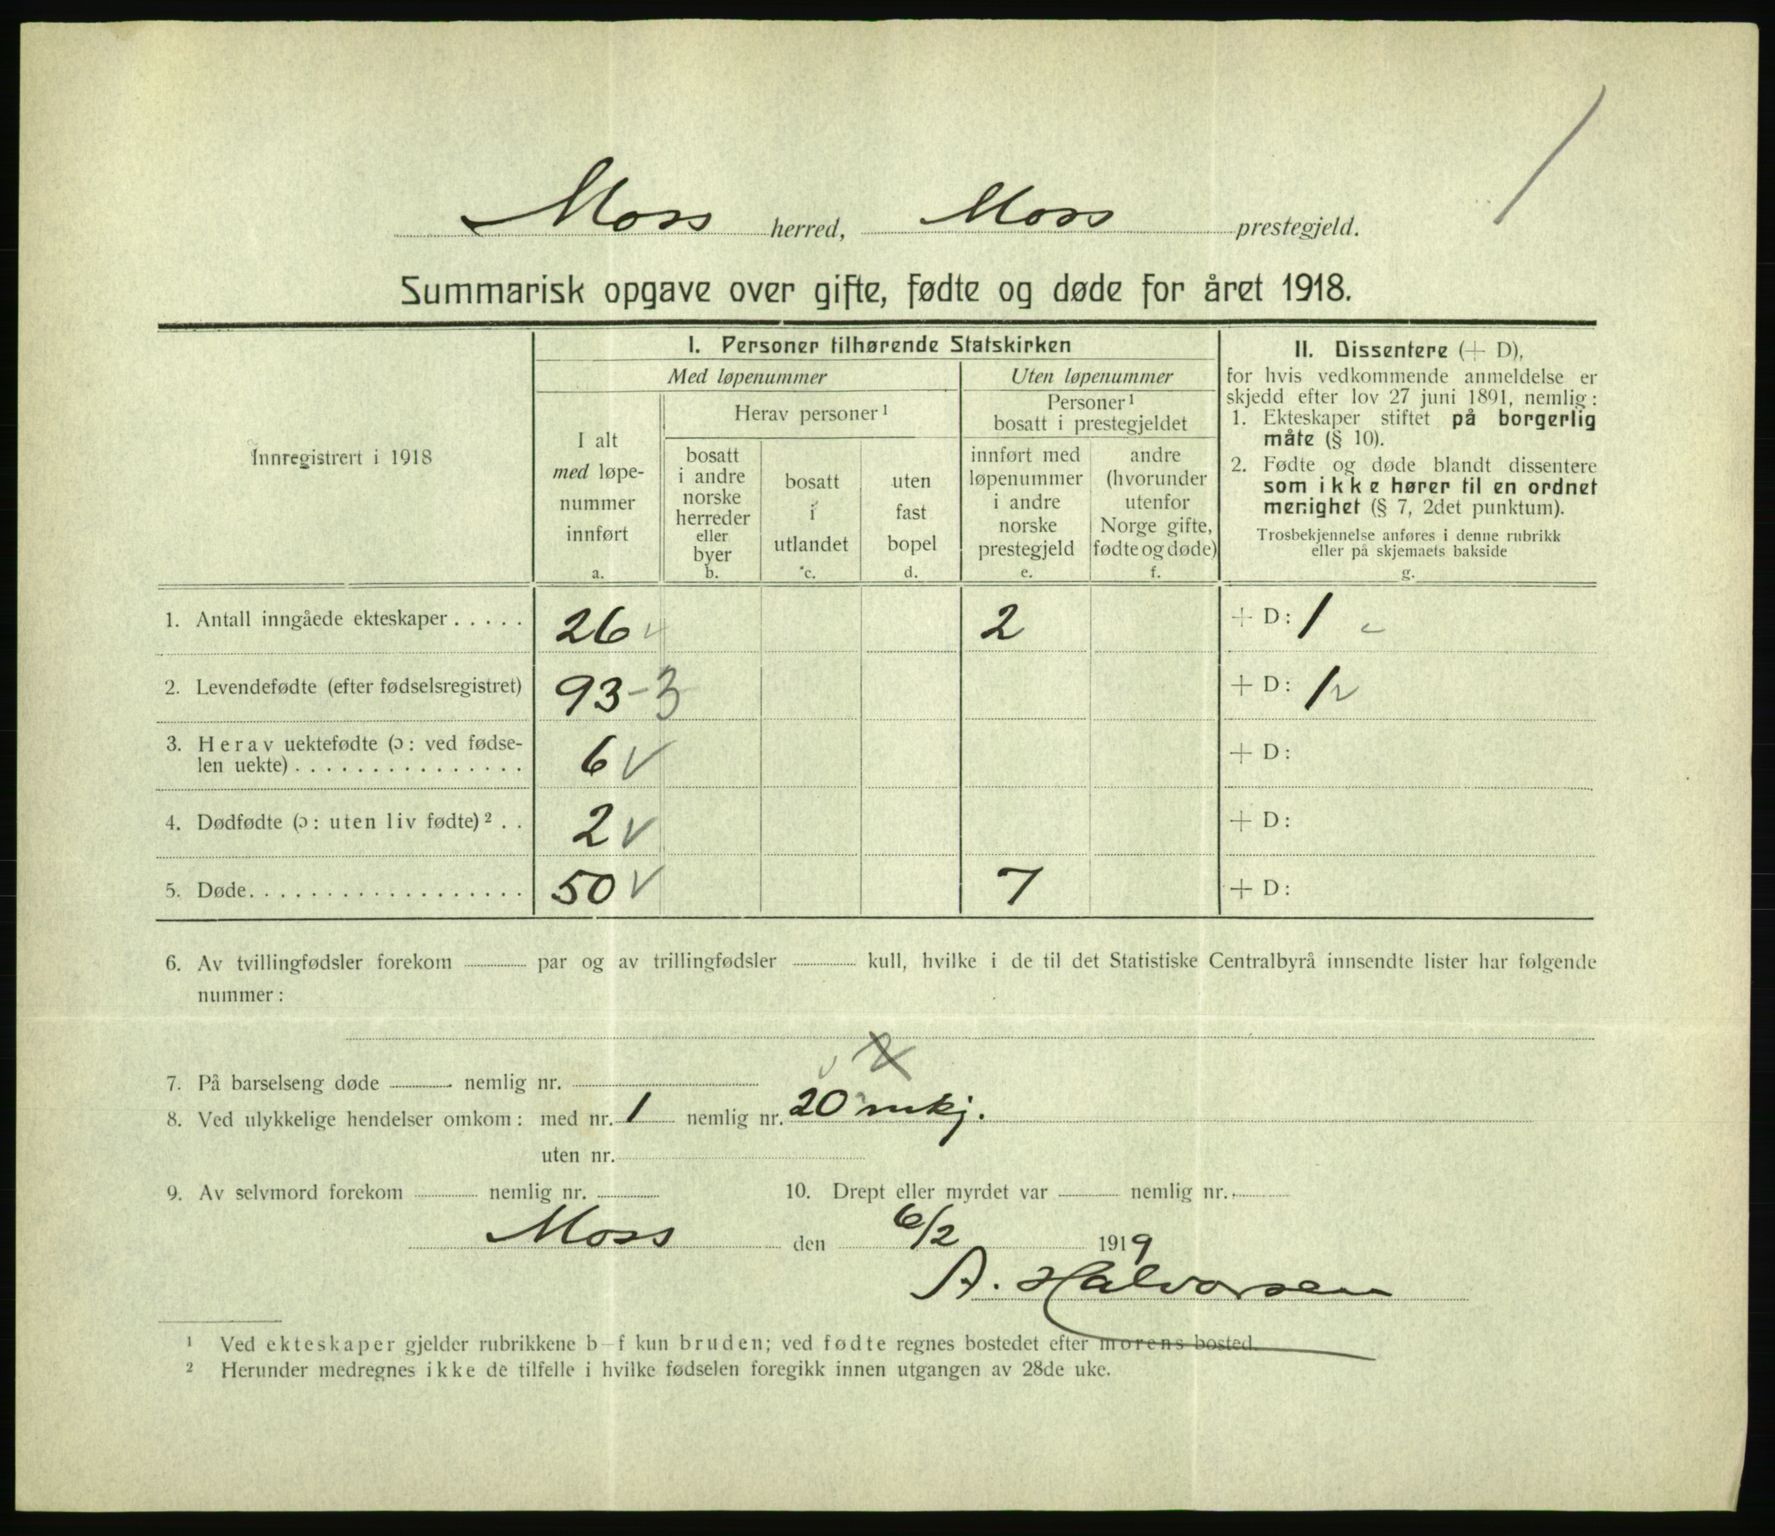 Moss herred, Moss prestegjeld.
Summarisk opgave over gifte, fødte og døde for året 1918.
Innregistrert i 1918
I. Personer tilhørende Statskirken
Med løpenummer
Uten løpenummer
I alt
med løpe-
nummer
innført
a.
Herav personer ¹
bosatt
i andre
norske
herreder
eller
byer
b.
bosatt
i
utlandet
c.
uten
fast
bopel
d.
Personer ¹
bosatt i prestegjeldet
innført med
løpenummer
i andre
norske
prestegjeld
e.
andre
(hvorunder
utenfor
Norge gifte,
fødte og døde)
f.
II. Dissentere (+ D),
for hvis vedkommende anmeldelse er
skjedd efter lov 27 juni 1891, nemlig:
1. Ekteskaper stiftet på borgerlig
måte (§ 10).
2. Fødte og døde blandt dissentere
som ikke hører til en ordnet
menighet (§ 7, 2det punktum).
Trosbekjennelse anføres i denne rubrikk
eller på skjemaets bakside
g.
1. Antall inngåede ekteskaper . . . . . 26 2 + D: 1
2. Levendefødte (efter fødselsregistret) 93 - 3 + D: 1
3. Herav uektefødte (ɔ: ved fødse-
len uekte) . . . . . . . . . . . . . . . 6 + D:
4. Dødfødte (ɔ: uten liv fødte) ² . . 2 + D:
5. Døde . . . . . . . . . . . . . . . . . . 50 7 + D:
6. Av tvillingfødsler forekom par og av trillingfødsler kull, hvilke i de til det Statistiske Centralbyrå innsendte lister har følgende
nummer:
7. På barselseng døde nemlig nr.
8. Ved ulykkelige hendelser omkom: med nr. 1 nemlig nr. 20 mkj.
uten nr.
9. Av selvmord forekom nemlig nr. 10. Drept eller myrdet var nemlig nr.
Moss den 6/2 1919
A. Halvorsen
¹ Ved ekteskaper gjelder rubrikkene b–f kun bruden; ved fødte regnes bostedet efter morens bosted.
² Herunder medregnes ikke de tilfelle i hvilke fødselen foregikk innen utgangen av 28de uke.